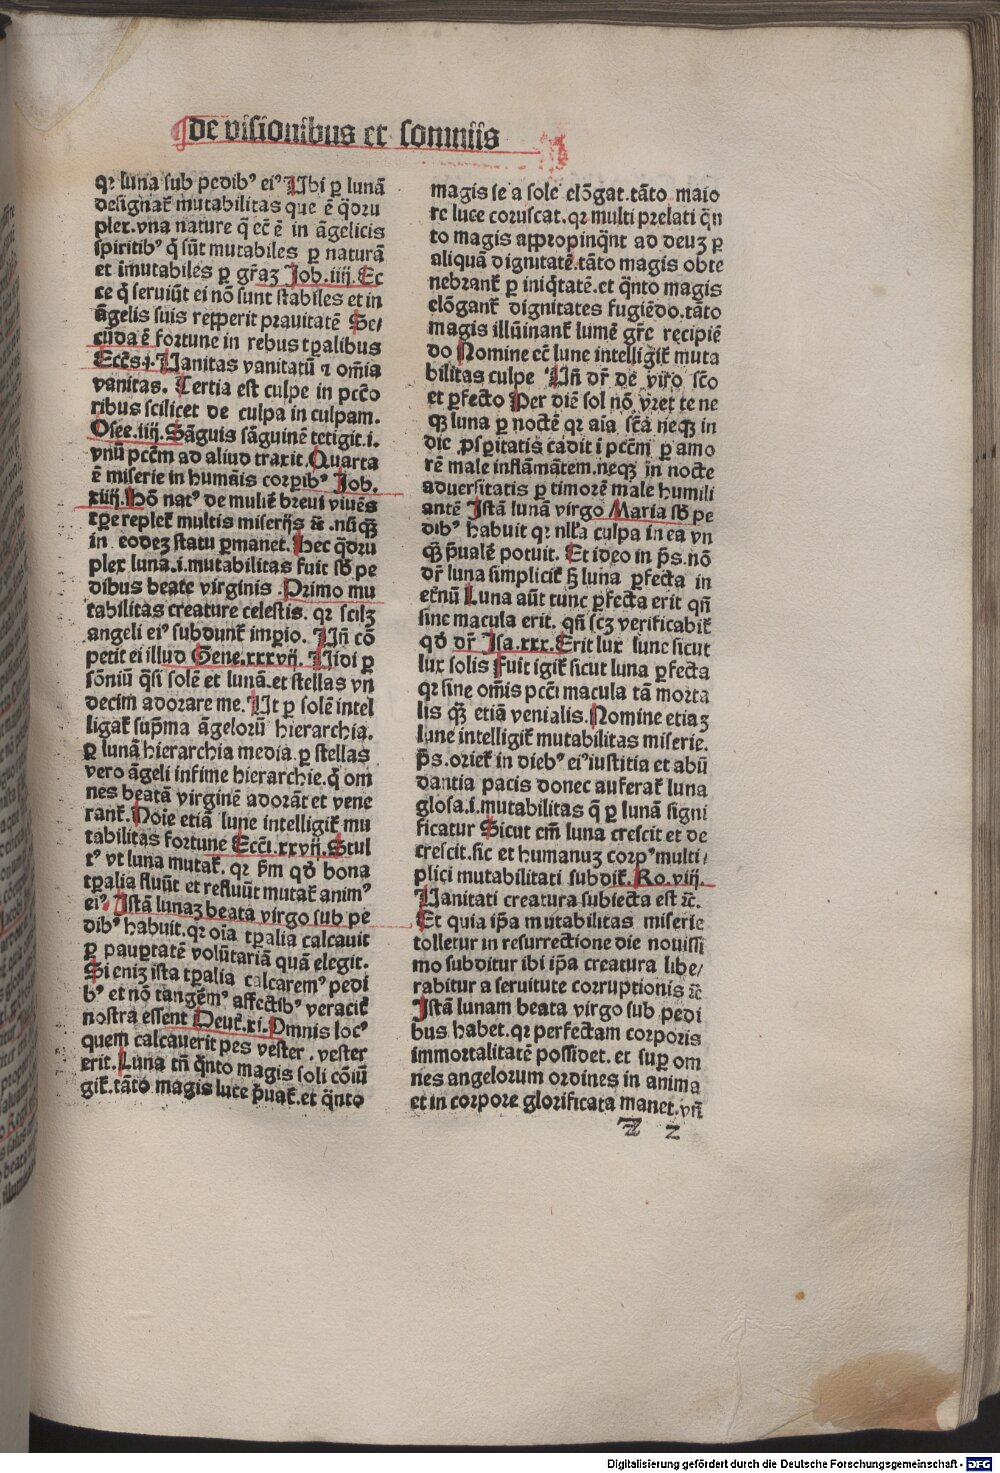 de visionibus et somniis
qꝛ luna sub pedibꝰ eiꝰ Ubi ꝑ lunā
designat̄ mutabilitas que ē q̄dru
plex. vna nature q̄ ec̄ ē in āgelicis
spiritibꝰ q̄ sūt mutabiles ꝑ naturā
et īmutabiles ꝑ gr̄aꝫ Job. iiij. Ec
ce q̄ seruiūt ei nō sunt stabiles et in
āgelis suis repperit prauitatē Se/
cūda ē fortune in rebus tꝑalibus
Ecc̄s. j. Uanitas vanitatū ⁊ om̄ia
vanitas. Tertia est culpe in pccō
ribus scilicet de culpa in culpam.
Osee. iiij. Sāguis sāguinē tetigit .i.
vnū pcc̄m ad aliud traxit. Quarta
ē miserie in humāis corꝑibꝰ Job.
xiiij. Hō natꝰ de muliē breui viuēs
tꝑe replet̄ multis miserijs ⁊c̄. nūqꝫ
in eodeꝫ statu ꝑmanet. Hec q̄dru
plex luna .i. mutabilitas fuit sb̄ pe
dibus beate virginis. Primo mu
tabilitas creature celestis. qꝛ scilꝫ
angeli eiꝰ subdunt̄ imꝑio. Un̄ cō
petit ei illud Gene. xxxvij. Uidi ꝑ
sōniū q̄si solē et lunā. et stellas vn
decim adorare me. Ut ꝑ solē intel
ligat̄ sup̄ma āgelorū hierarchia.
ꝑ lunā hierarchia media. ꝑ stellas
vero āgeli infime hierarchie. q̄ om
nes beatā virginē adorāt et vene
rant̄. Noīe etiā lune intelligit̄ mu
tabilitas fortune Ecc̄i. xxvij. Stul
tꝰ vt luna mutat̄. qꝛ p̄m qd̄ bona
tꝑalia fluūt et refluūt mutat̄ animꝰ
eiꝰ. Istā lunaꝫ beata virgo sub pe
dibꝰ habuit. qꝛ oīa tꝑalia calcauit
ꝑ pauꝑtatē volūtariā quā elegit.
Si eniꝫ ista tꝑalia calcaremꝰ pedi
bꝰ et nō tangēmꝰ affectibꝰ veracit̄
nostra essent Deut̄. xi. Omnis locꝰ
quem calcauerit pes vester. vester
erit. Luna tn̄ q̄nto magis soli cōiū
git̄. tāto magis luce p̄uat̄. et q̄nto
magis se a sole elōgat. tāto maio
re luce coruscat. qꝛ multi prelati q̄n
to magis appropinqn̄t ad deuꝫ ꝑ
aliquā dignitatē. tāto magis obte
nebrant̄ ꝑ iniqtatē. et q̄nto magis
elōgant̄ dignitates fugiēdo. tāto
magis illūinant̄ lumē gr̄e recipiē
do Nomine ec̄ lune intelligit̄ muta
bilitas culpe Un̄ dr̄ de viro scō
et ꝑfecto Per diē sol nō vret te ne
qꝫ luna ꝑ noctē qꝛ aīa sc̄a neqꝫ in
die ꝓsꝑitatis cadit ī pcc̄m ꝑ amo
rē male inflāmātem. neqꝫ in nocte
aduersitatis ꝑ timorē male humili
antē Istā lunā virgo Maria sb̄ pe
dibꝰ habuit qꝛ nlla culpa in ea vn
qꝫ p̄ualē potuit. Et ideo in p̄s. nō
dr̄ luna simplicit̄ sꝫ luna ꝑfecta in
et̄nū Luna aūt tunc ꝑfecta erit qn̄
sine macula erit. qn̄ scꝫ verificabit̄
qd̄ dr̄ Isa. xxx. Erit lux lune sicut
lux solis Fuit igit̄ sicut luna ꝑfecta
qꝛ sine om̄is pcc̄i macula tā morta
lis qꝫ etiā venialis. Nomine etiaꝫ
lune intelligit̄ mutabilitas miserie.
p̄s. oriet̄ in diebꝰ eiꝰ iustitia et abū
dantia pacis donec auferat̄ luna
glosa .i. mutabilitas q̄ ꝑ lunā signi
ficatur Sicut em̄ luna crescit et de
crescit. sic et humanuꝫ corpꝰ multi/
plici mutabilitati subdit̄. Ro. viij.
Uanitati creatura subiecta est ⁊c̄.
Et quia ip̄a mutabilitas miserie
tolletur in resurrectione die nouissi
mo subditur ibi ip̄a creatura libe/
rabitur a seruitute corruptionis ⁊c̄
Istā lunam beata virgo sub pedi
bus habet. qꝛ perfectam corporis
immortalitatē possidet. et suꝑ om
nes angelorum ordines in anima
et in corpore glorificata manet. vn̄
Z z
Digitalisierung gefördert durch die Deutsche Forschungsgemeinschaft - DFG